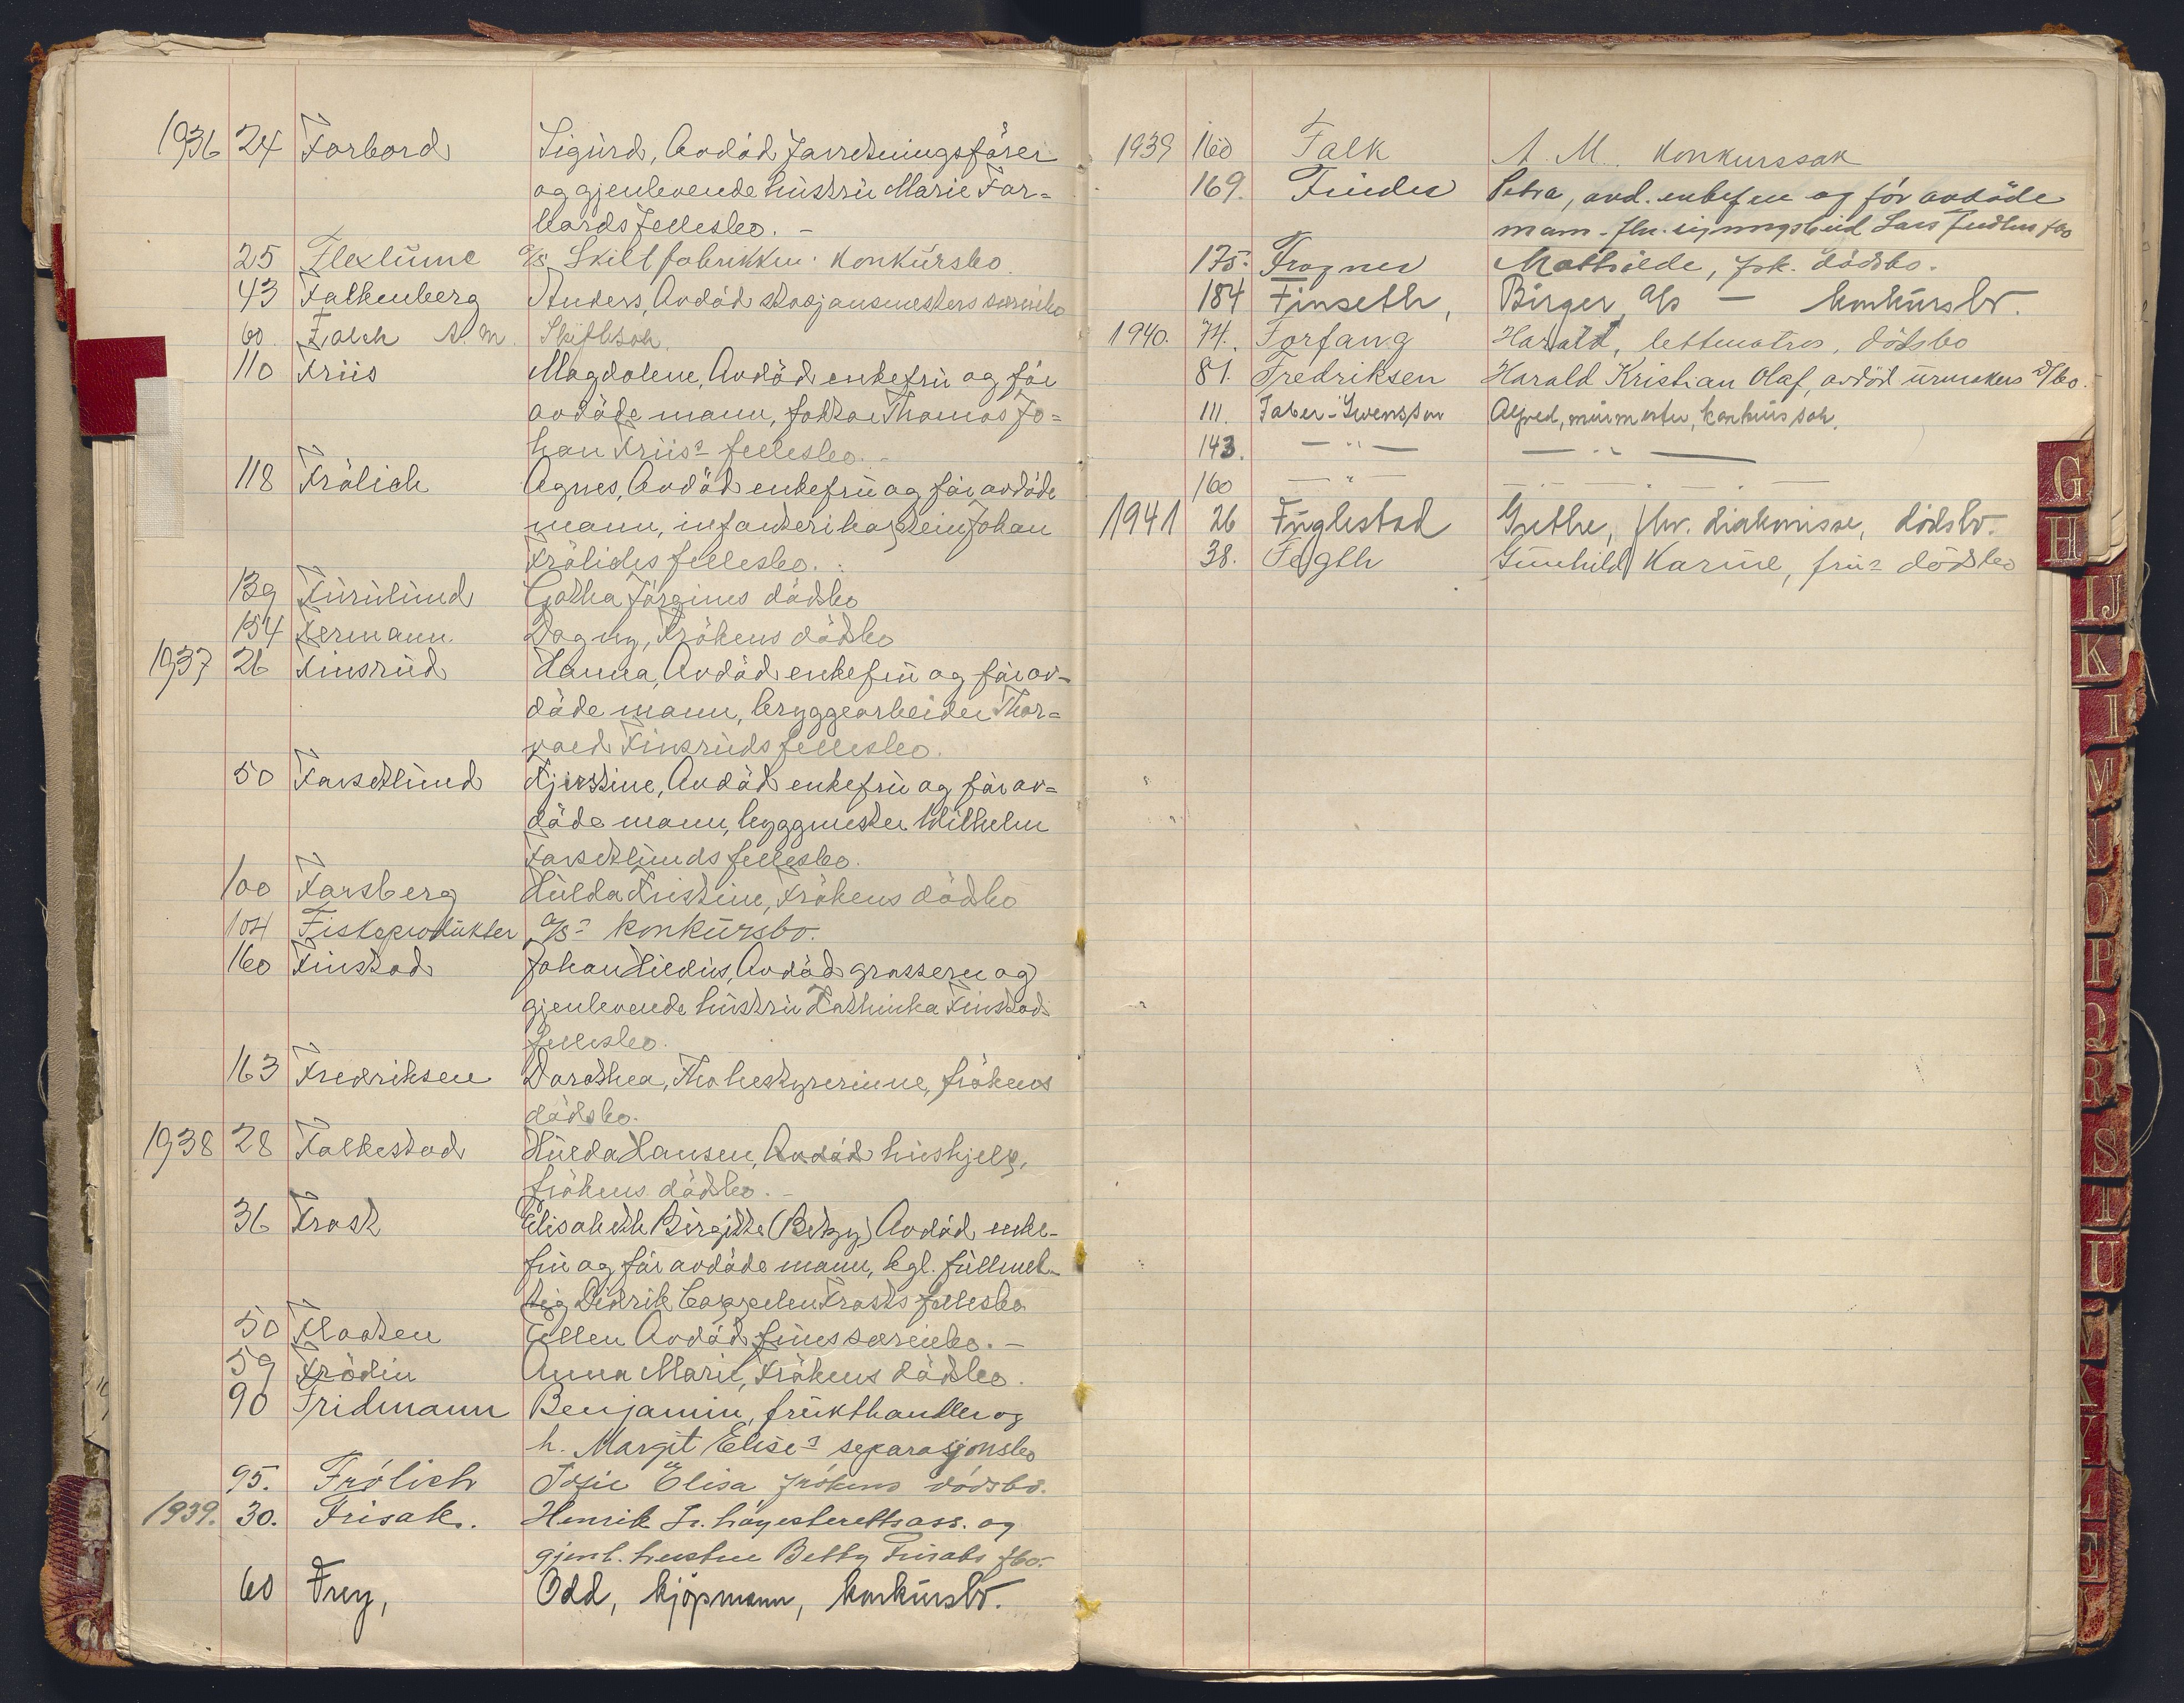 1936 24 Forbord Sigurd, Avdöd forretningsförer
og gjenlevende hustru Marie For=
bords fellesbo. –
25 Flexlume a/s Skiltfabrikken: Konkursbo.
43 Falkenberg Anders, Avdöd stasjonsmesters særeiebo
60. Falch A. M. Skiftesak.
110 Friis Magdalene, Avdöd enkefru og för
avdöde mann, Thomas Jo=
han Friis' fellesbo. –
118 Frölich Agnes, Avdöd enkefru og för avdöde
mann, infanterikaptein Johan
Frölichs fellesbo.
139 Furulund Gotha Jörgines dödsbo
154 Fermann Dagny, Frökens dödsbo
1937 26 Finsrud Hanna, Avdöd enkefru og för av-
döde mann, bryggearbeider Thor=
vald Finsruds fellesbo.
50 Kjerstine, Avdöd enkefru og för av=
döde mann, byggmester Wilhelm
fellesbo.
100 Forsberg Hulda Kristine, Frökens dödsbo
104 Fiskeprodukter a/s' konkursbo.
160 Finstad Johan Hilder, Avdöd grosserer og
gjenlevende hustru Kathinka Finstads
fellesbo.
163 Fredriksen Dorothea, frökens
dödsbo.
1938 28 Falkestad Hulda Hansen, Avdöd hushjelp,
frökens dödsbo. –
36 Frost Elisabeth Birgitte (Betzy) Avdöd enke-
fru og för avdöde mann, kgl. fullmek-
tig Didrik Cappelen Frosts fellesbo
50 Flaaten Ellen Avdöd frues særeiebo. –
59 Frödin Anna Marie, Frökens dödsbo.
90 Fridmann Benjamin, frukthandler og
h. Margit Elise' separasjonsbo
95. Frölich Sofie Elisa frökens dödsbo.
1939. 30. Frisak. Henrik Fr. höyesterettsass. og
gjenl. hustru Betty Frisaks fbo.
60 Frey, Odd, kjöpmann, konkursbo.
1939 160 Falk A. M. Konkurssak
169. Petra, avd. enkefru og för avdöde
mann – Lars fbo
175. Frogner Mathilde, frk. dödsbo.
184 Finseth, Birger, a/s – konkursbo.
1940. 74. Forfang Harald, lettmatros, dödsbo
81. Fredriksen Harald Kristian Olaf, avdöd urmakers d/bo.
111. Faber-Swensson Alfred, murmester, konkurssak.
143. — " — — " —
160 — " — — " —
1941 26 Fuglestad Grethe, fhv. diakonisse, dödsbo.
38. Fegth Gunhild Karine, frus dödsbo
G
H
IJ
K
M
N
O
P
Q
R
S
T
U